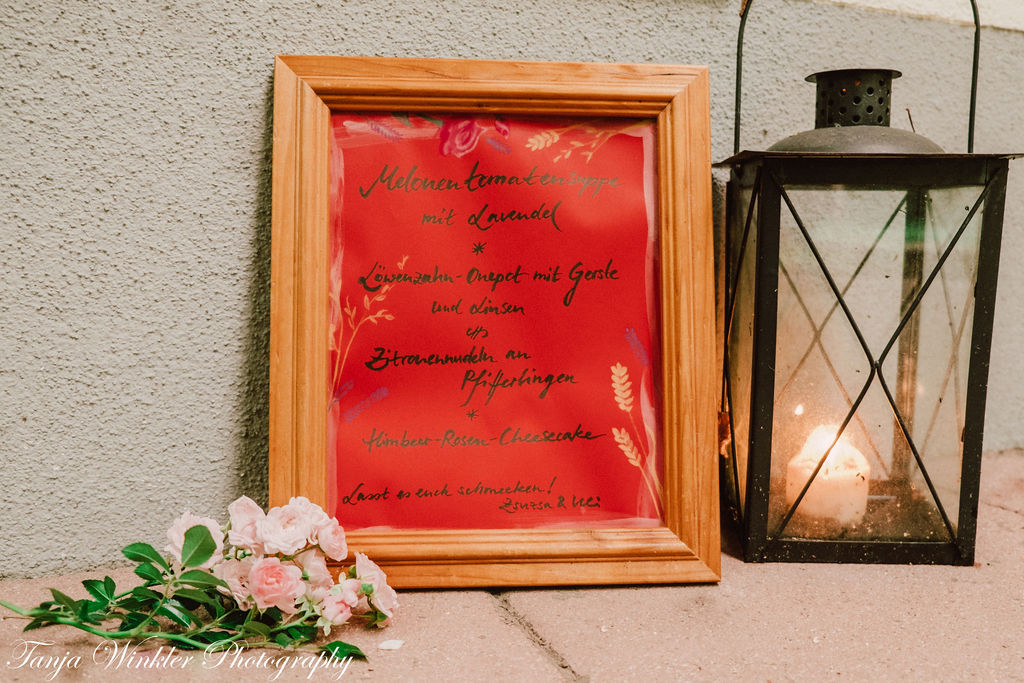 Melonentomatensuppe
mit Lavendel
*
Löwenzahn-Onepot mit Gerste
und Linsen
Zitronennudeln an
Pfifferlingen
*
Himbeer-Rosen-Cheesecake
Lasst es euch schmecken!
Zsuzsa & Uli
Tanja Winkler Photography